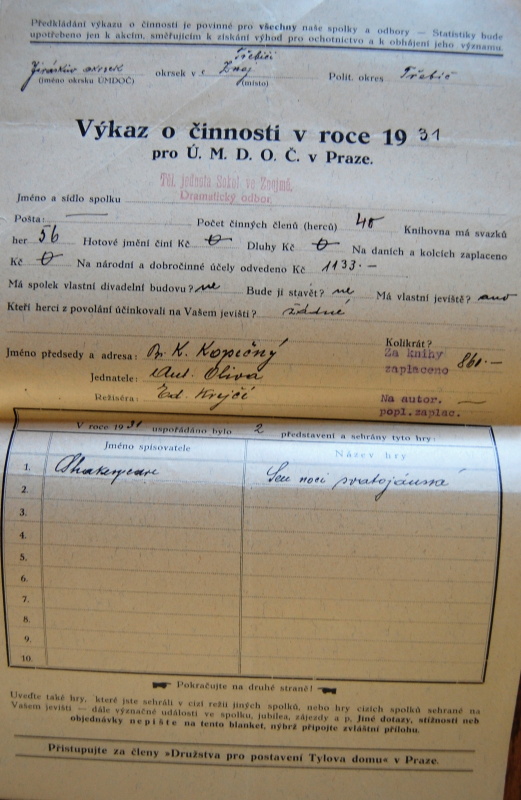 Předkládání výkazu o činnosti je povinné pro všechny naše spolky a odbory — Statistiky bude
upotřebeno jen k akcím, směřujícím k získání výhod pro ochotnictvo a k obhájení jeho významu.
Třebíči
Jiráskův okrsek okrsek v Znoj Polit. okres Třebíč
(jméno okrsku ÚMDOČ) (místo)
Výkaz o činnosti v roce 1931
pro Ú. M. D. O. Č. v Praze.
Těl. jednota Sokol ve Znojmě.
Jméno a sídlo spolku Dramatický odbor.
Pošta: — Počet činných členů (herců) 40 Knihovna má svazků
her 56 Hotové jmění činí Kč 0 Dluhy Kč 0 Na daních a kolcích zaplaceno
Kč 0 Na národní a dobročinné účely odvedeno Kč 1133.-
Má spolek vlastní divadelní budovu? ne Bude ji stavět? ne Má vlastní jeviště? ano
Kteří herci z povolání účinkovali na Vašem jevišti? žádné
Kolikrát?
Jméno předsedy a adresa: Br. K. Kopečný Za knihy
zaplaceno 860.-
Jednatele: Ant. Oliva
Režiséra: Ed. Krejčí Na autor. —
popl. zaplac.
V roce 1931 uspořádáno bylo 2 představení a sehrány tyto hry:
Jméno spisovatele Název hry
1. Shakespeare Sen noci svatojánské
2.
3.
4.
5.
6.
7.
8.
9.
10.
Pokračujte na druhé straně!
Uveďte také hry, které jste sehráli v cizí režii jiných spolků, nebo hry cizích spolků sehrané na
Vašem jevišti — dále význačné události ve spolku, jubilea, zájezdy a p. Jiné dotazy, stížnosti neb
objednávky nepište na tento blanket, nýbrž připojte zvláštní přílohu.
Přistupujte za členy »Družstva pro postavení Tylova domu« v Praze.